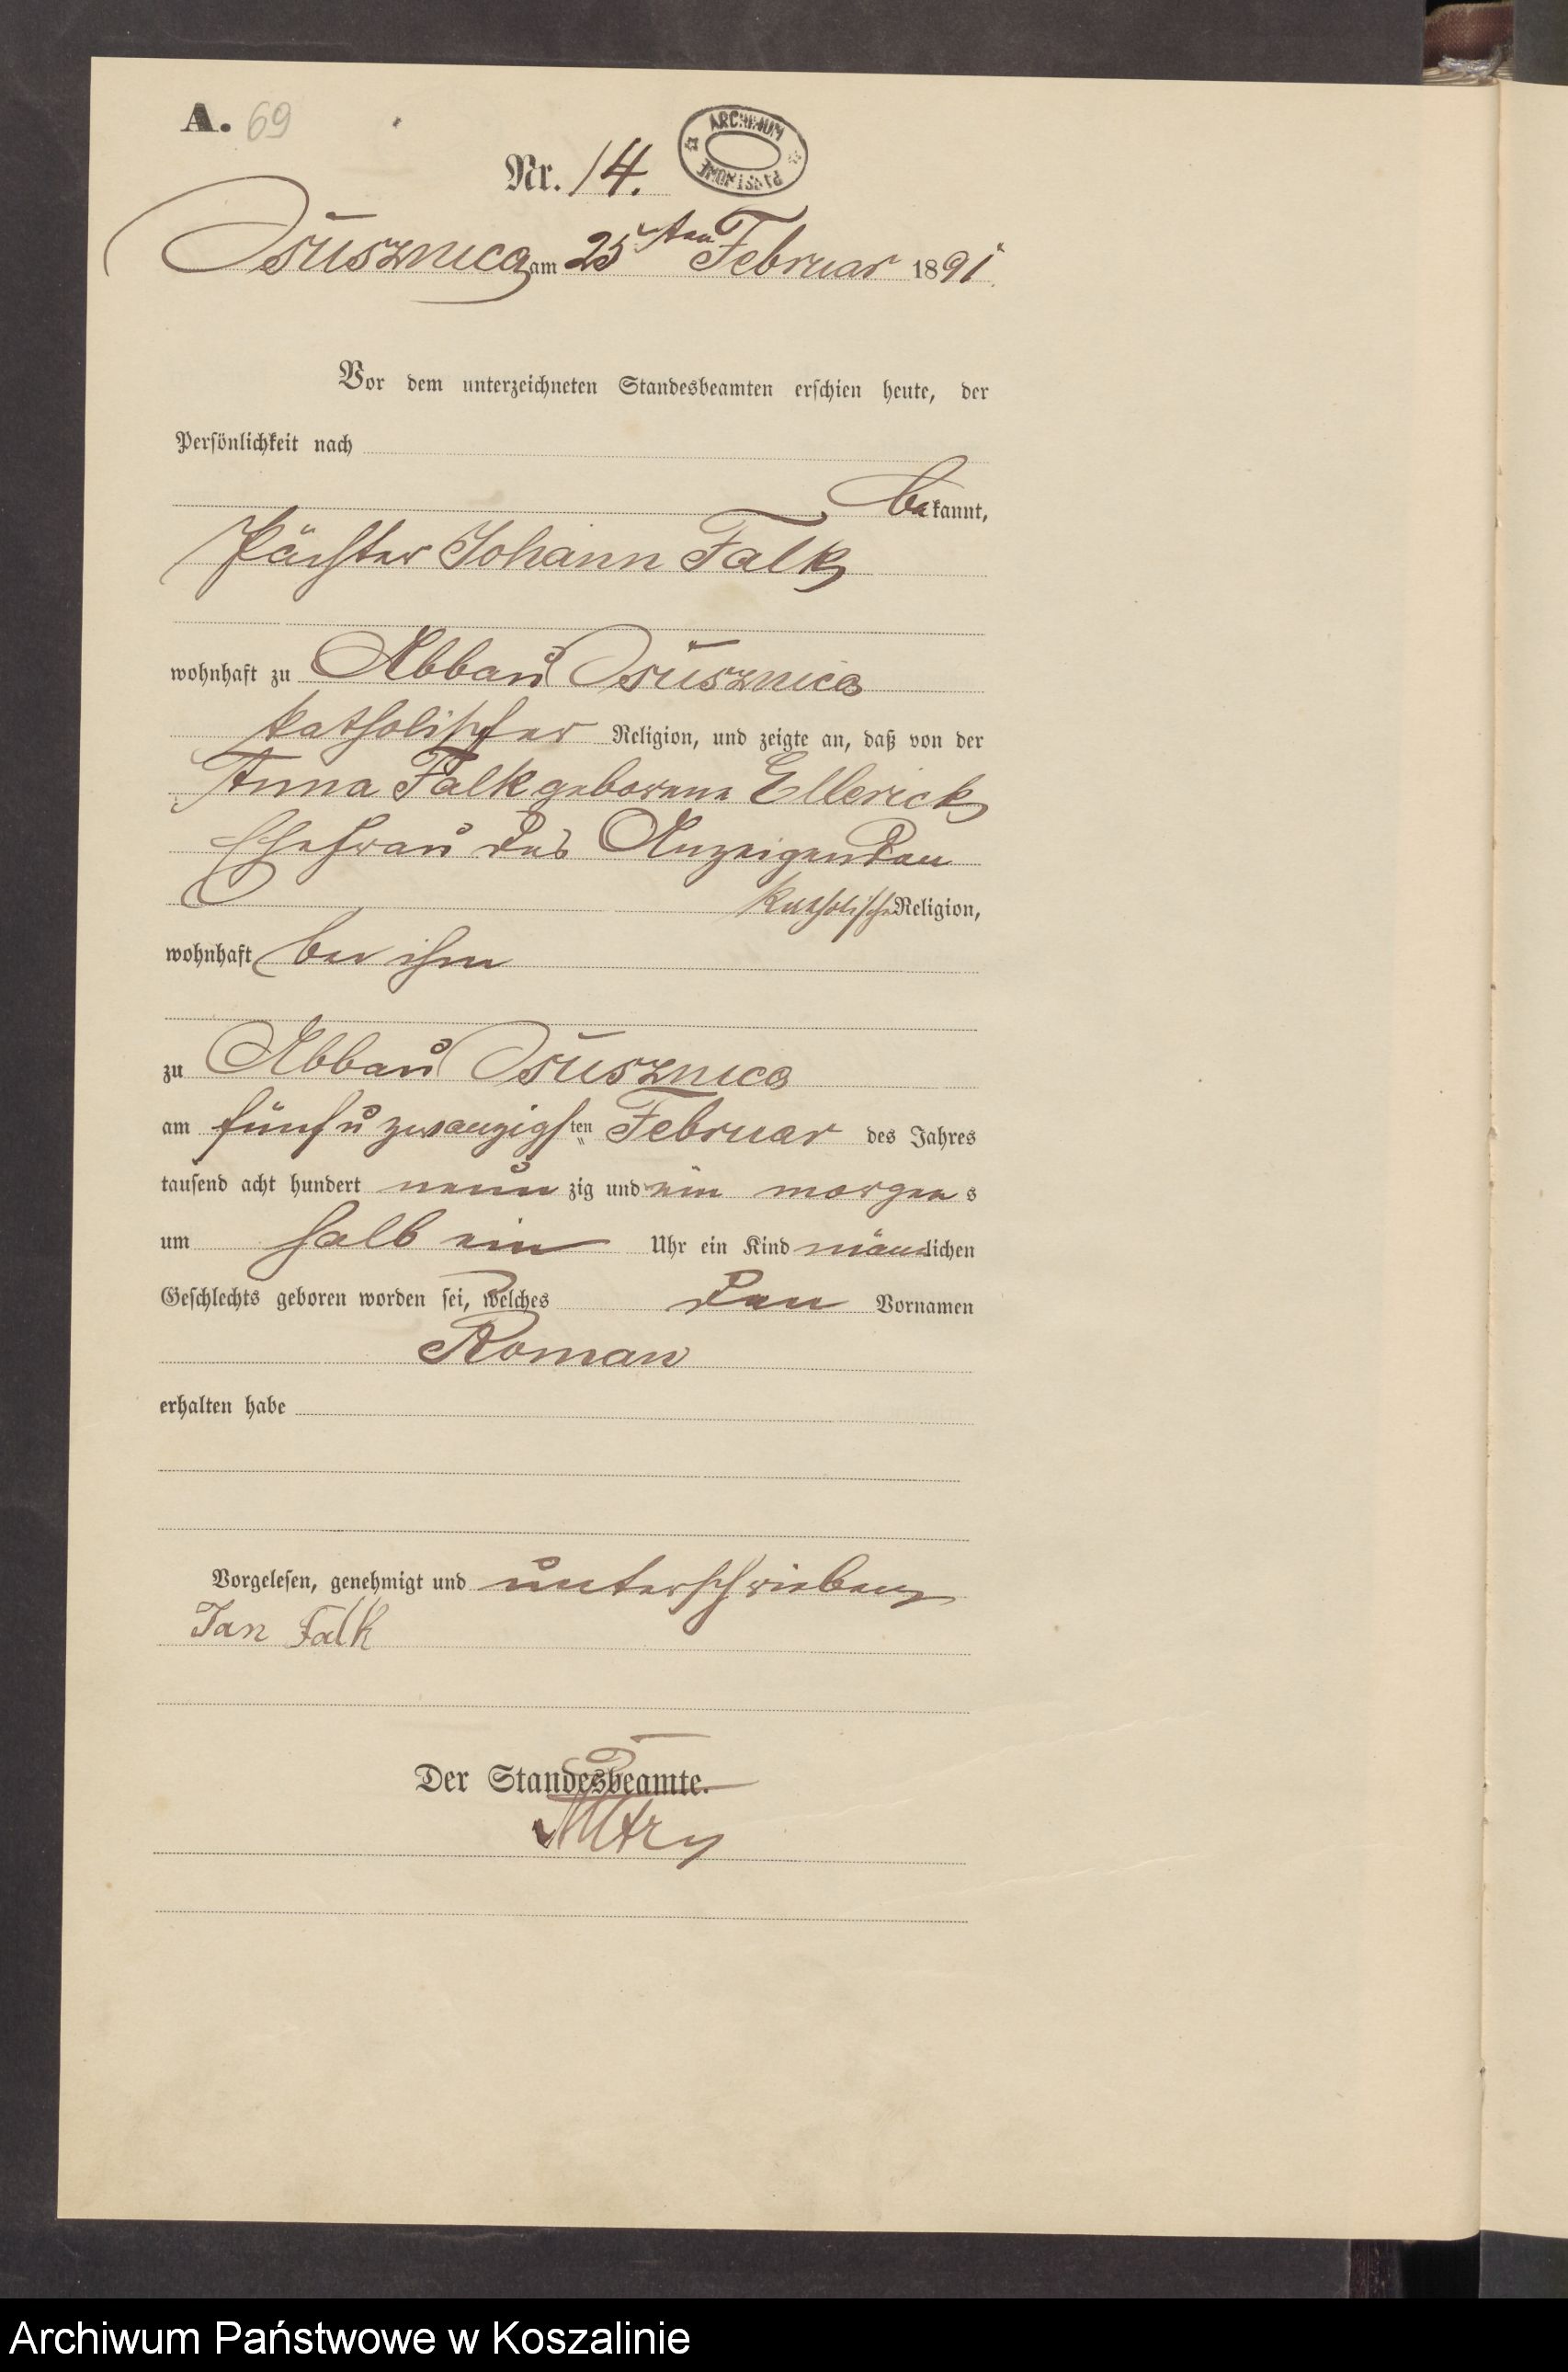 A. 69
Nr. 14.
ARCHIWUM PAŃSTWOWE
Osusznica am 25ten Februar 1891.
Vor dem unterzeichneten Standesbeamten erschien heute, der
Persönlichkeit nach
bekannt,
Pächter Johann Falk
wohnhaft zu Abbau Osusznica
katholischer Religion, und zeigte an, daß von der
Anna Falk geborene Ellerick
Ehefrau des Anzeigenden
katholischer Religion,
wohnhaft bei ihm
zu Abbau Osusznica
am fünf u zwanzigsten Februar des Jahres
tausend acht hundert neun zig und ein morgens
um halb ein Uhr ein Kind männlichen
Geschlechts geboren worden sei, welches den Vornamen
Roman
erhalten habe
Vorgelesen, genehmigt und unterschrieben
Jan Falk
Der Standesbeamte.
Archiwum Państwowe w Koszalinie